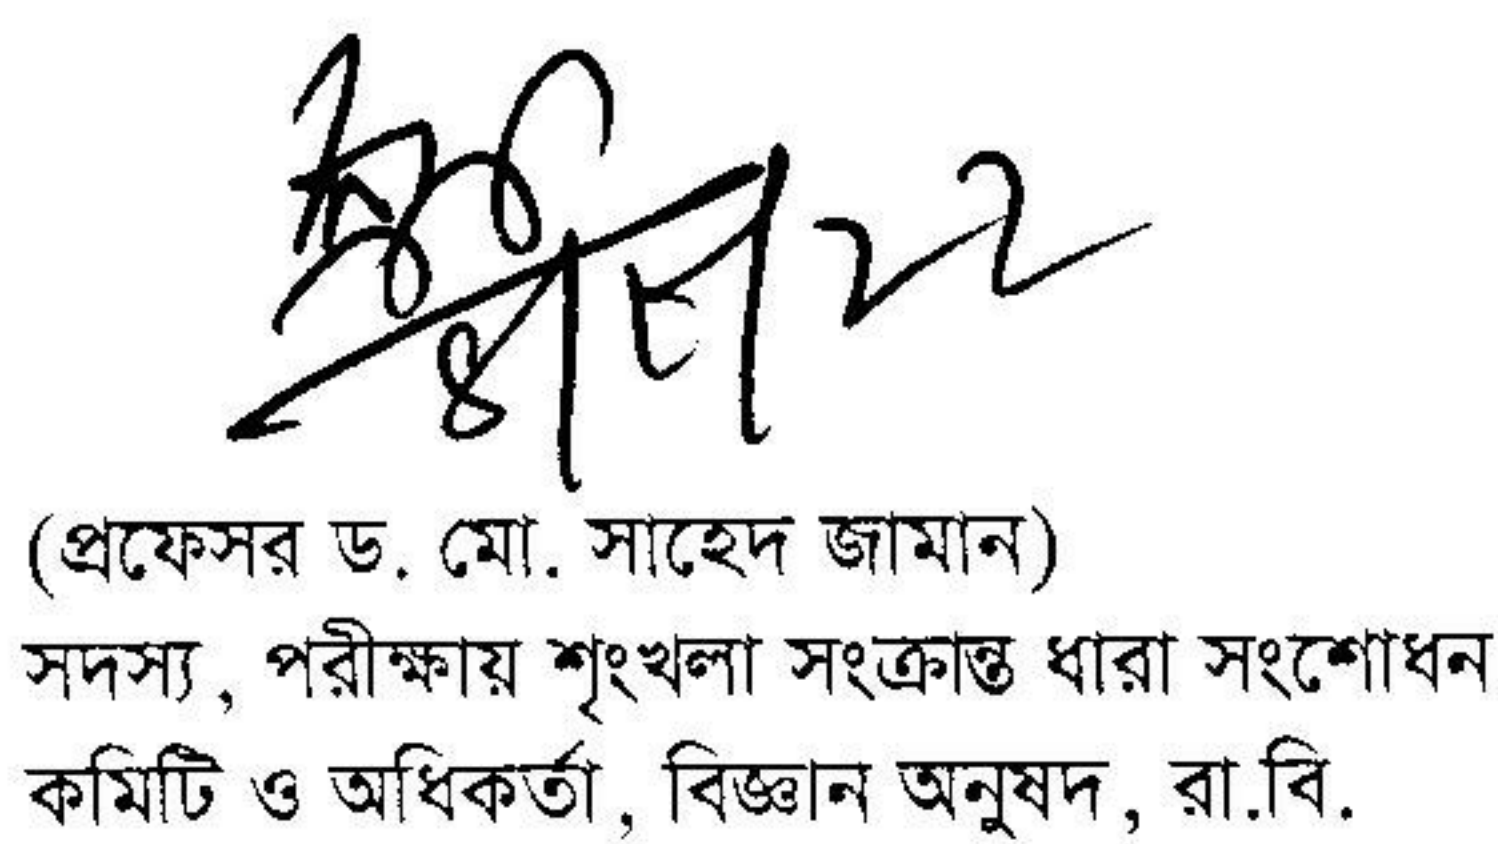 (প্রফেসর ড. মো. সাহেদ জামান)
সদস্য, পরীক্ষায় শৃংখলা সংক্রান্ত ধারা সংশোধন
কমিটি ও অধিকর্তা, বিজ্ঞান অনুষদ, রা.বি.